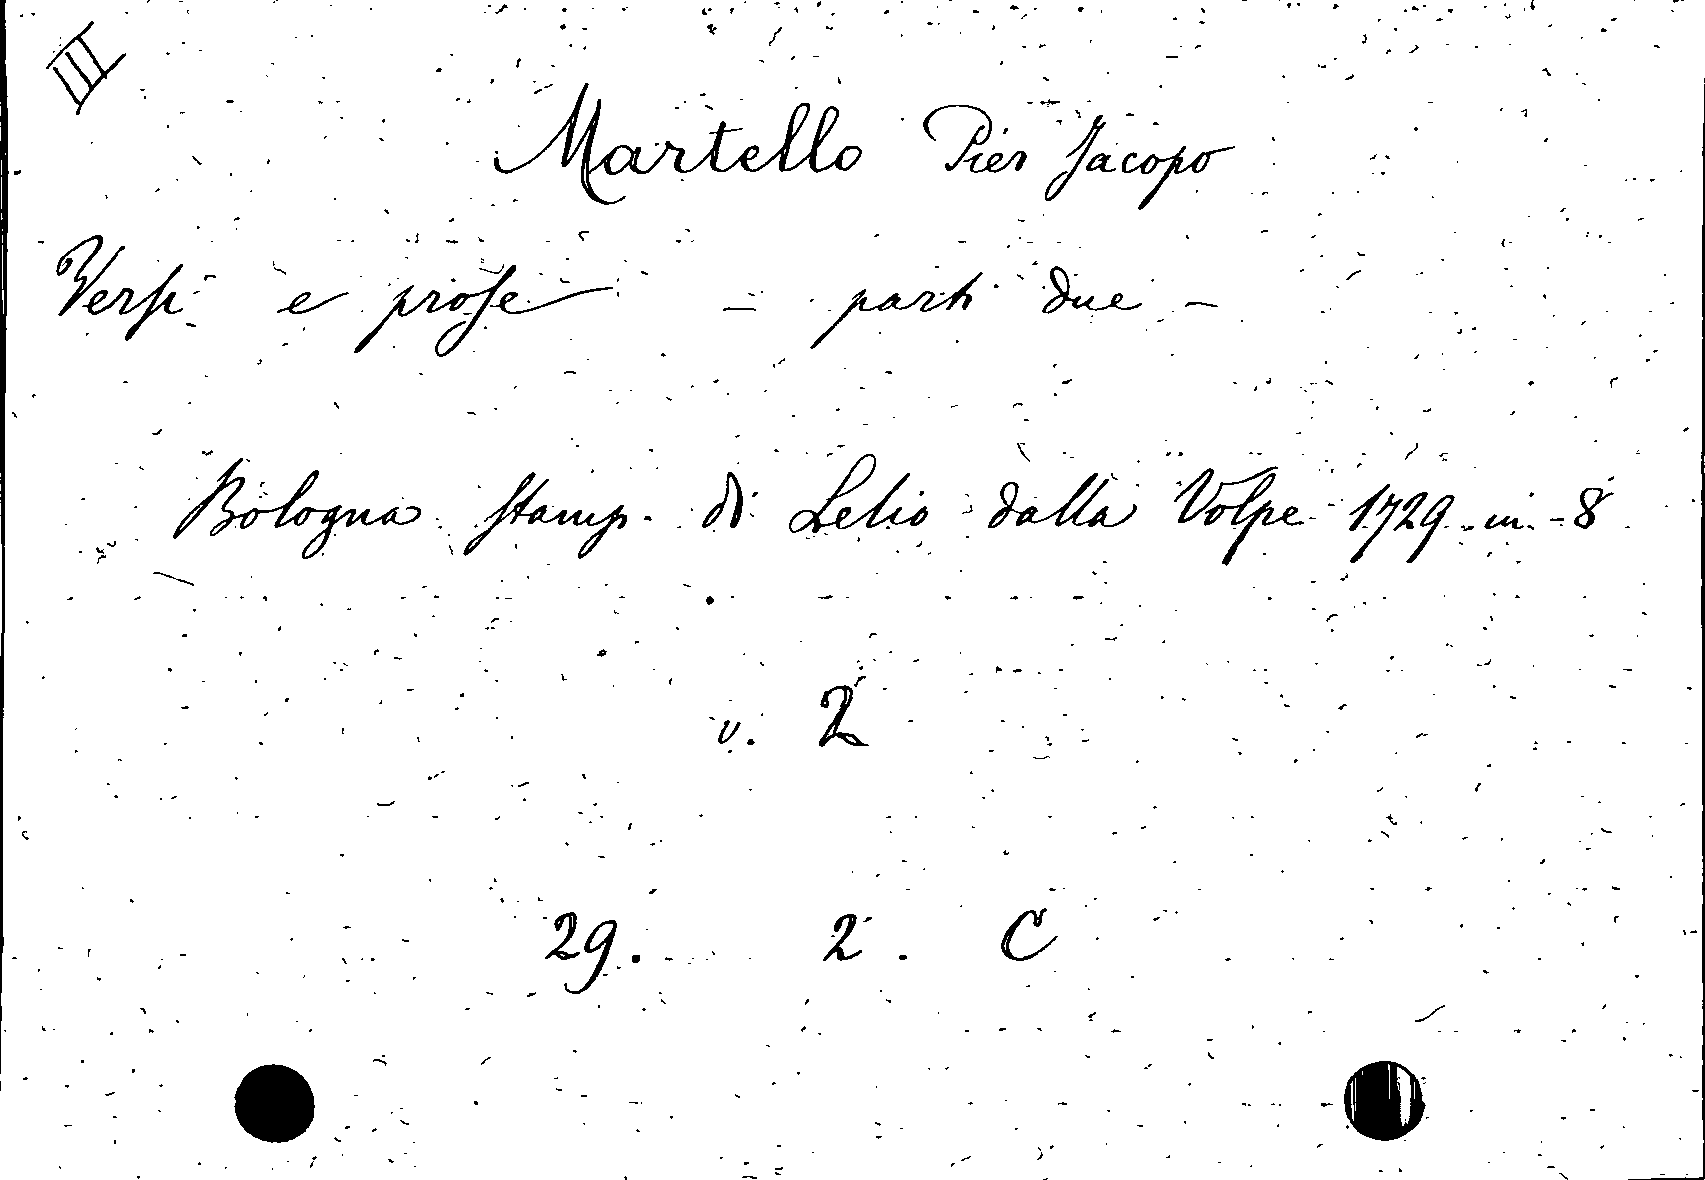 III
Martello Pier Jacopo
Versi e prose - parti due -
Bologna stamp. di Lelio dalla Volpe 1729 in-8
v. 2
29. 2. C